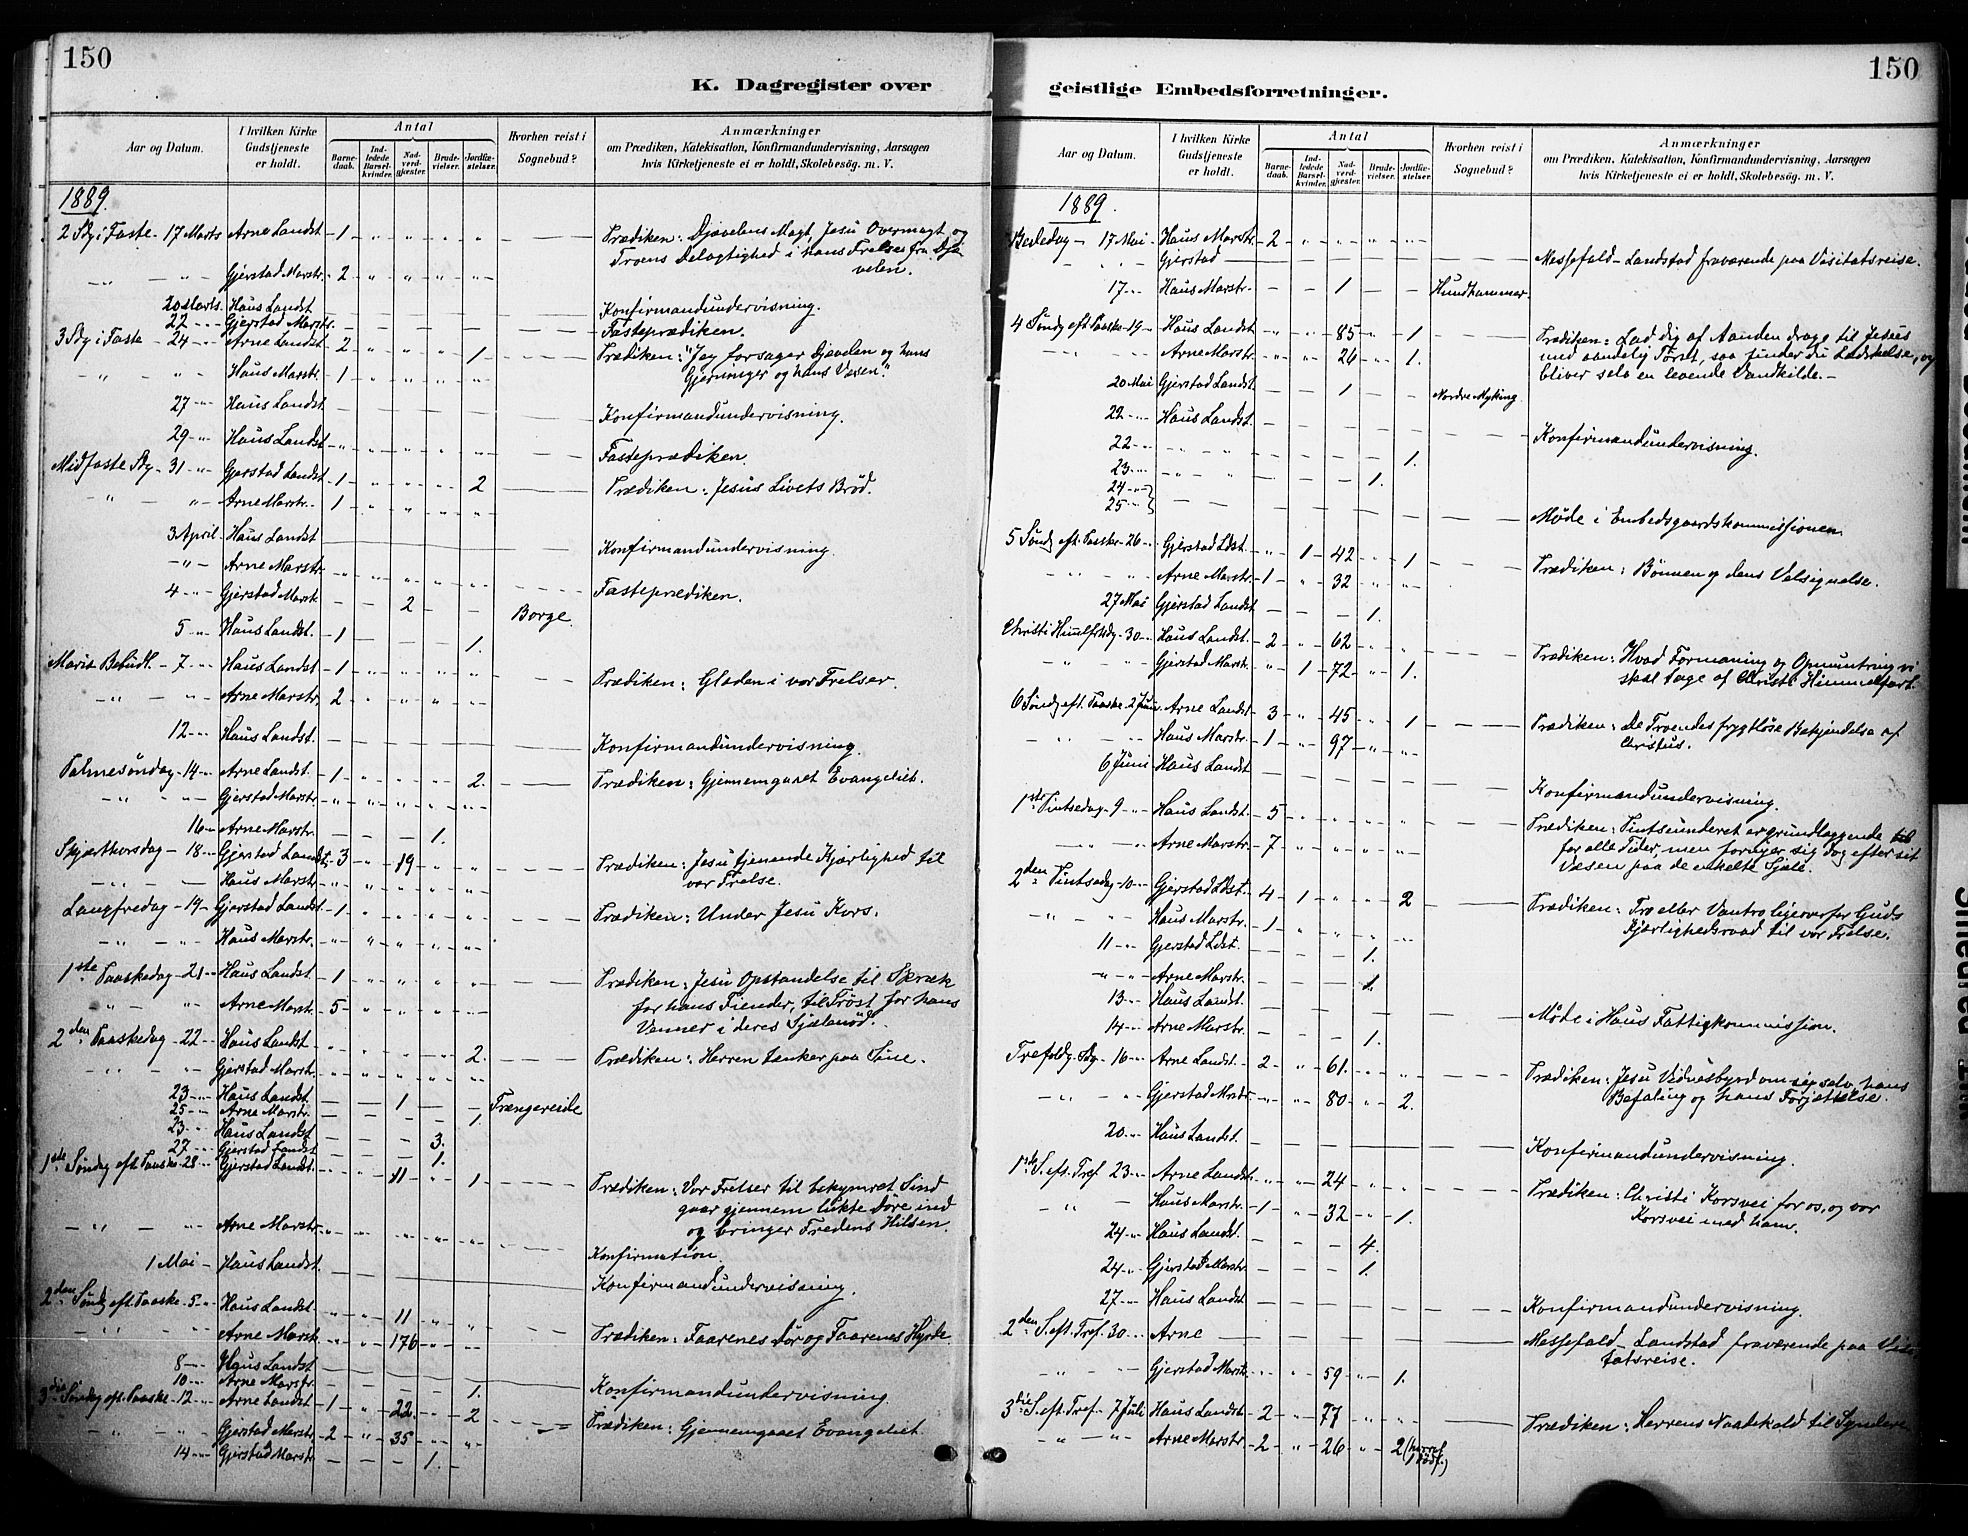 150
K. Dagregister over
Aar og Datum. I hvilken Kirke Gudstjeneste er holdt. Antal Barnedaab. Indledede Barselkvinder. Nadverdgjæster. Brudevielser. Jordfæstelser. Hvorhen reist i Sognebud? Anmærkninger om Prædiken, Katekisation, Konfirmandundervisning, Aarsagen hvis Kirketjeneste ei er holdt, Skolebesøg. m. V.
1889.
2 Sdg i Faste - 17 Marts Arne Landst. 1 " " " " Prædiken: Djævelens Magt, Jesu Overmagt og
Troens Delagtighed i hans Frelse fra Djævelen.
" - " Gjerstad Marstr. 2 " " " "
20 Marts. Haus Landst Konfirmandundervisning.
22 " Gjerstad Marstr. Fasteprædiken.
3 Sdg i Faste - 24 " Arne Landst. 2 " " " 1. Prædiken: "Jeg forsager Djævelen og hans
Gjerninger og hans Væsen".
" - " Haus Marstr. 1 " " " "
27 " Haus Landst. Konfirmandundervisning.
29 " Haus Landst. Fasteprædiken.
Midfaste Sdg - 31 " Gjerstad Landst. 1 " " " 2 Prædiken: Jesus Livets Brød.
" - " Arne Marstr. 1 " " " "
3 April Haus Landst Konfirmandundervisning.
" " Arne Marstr. " " " " " Fasteprædiken.
4 " Gjerstad Marst. 2 Borge.
5 " Haus Landst. 1 1.
Mariæ Bebudl. - 7 " Haus Landst 1 " " " " Prædiken: Glæden i vor Frelser.
" - " Arne Marstr. 2 " " " "
12 " Haus Landst. Konfirmandundervisning.
Palmesöndag - 14 " Arne Landst. 1 " " " 2. Prædiken: Gjennemgaaet Evangeliet.
" " Gjerstad Marstr. " " " " "
16 " Arne Marstr. 1.
Skjærthorsdag - 18 " Gjerstad Landst. 3 " 19 " " Prædiken: Jesu tjenende Kjærlighed til
vor Frelse.
" - " Haus Marstr. " " " " "
Langfredag - 19 - Gjerstad Landst 1 " " " " Prædiken: Under Jesu Kors.
" - " Haus Marstr. " " " " "
1ste Paaskedag - 21 " Haus Landst. 1 " " " " Prædiken: Jesu Opstandelse til Skræk
for hans Fiender, til Tröst for hans
Venner i deres Sjælenöd.
" - " Arne Marst. 5 " " " "
2den Paaskedag - 22 " Haus Landst " " " " 2. Prædiken: Herren tænker paa Sine.
" - " Gjerstad Marstr. " " " " "
23 " Haus Landst 1 Trængereide
25 " Arne Marstr. 1.
23 " Haus Landst 3.
27 " Gjerstad Landst 1.
1ste Søndag eft. Paaske 28 " Gjerstad Landst. " " 11 " 1 Prædiken: Vor Frelser til bekymret Sind
gaar gjennem lukte Døre ind
og bringer Fredens Hilsen.
" - " Arne Marstr. " " " " " Konfirmation.
1 Mai - Haus Landst. Konfirmandundervisning.
2den Søndg eft. Paaske - 5 " Haus Landst. " " 11 " "
" " Arne Marstr. " " 176 " " Prædiken: Faarenes Dør og Faarenes Hyrde
8 " Haus Landst.
10 " Arne Marstr. 1. Konfirmandundervisning.
3die Søndag eft. Paaske - 12 " Arne Landst 1 " 22 " 2 Prædiken: Gjennemgaaet Evangeliet
" - " Gjerstad Marstr. 2 " 35 " "
14 " Gjerstad Marstr. 1.
150
geistlige Embedsforretninger.
Aar og Datum. I hvilken Kirke Gudstjeneste er holdt. Antal Barnedaab. Indledede Barselkvinder. Nadverdgjæster. Brudevielser. Jordfæstelser. Hvorhen reist i Sognebud? Anmærkninger om Prædiken, Katekisation, Konfirmandundervisning, Aarsagen hvis Kirketjeneste ei er holdt, Skolebesøg. m. V.
1889.
Bededag - 17 Mai Haus Marstr. 2 " " " "
" " Gjerstad Messefald - Landstad fraværende paa Visitatsreise.
17 " Haus Marstr. 1 Hundhammer.
4 Søndg eft. Paaske - 19 " Haus Landst. " " 85 " 1 Prædiken: Lad dig af Aanden drage til Jesus
med aandelig Tørst, saa finder du Lædskelse, og
bliver selv en levende Vandkilde. -
" " Arne Marstr. " " 26 " 1.
20 Mai Gjerstad Landst. 1 Nordre Myking.
22 " Haus Landst. Konfirmandundervisning.
22 " " " 1.
23 " " " 1.
24 "
25 " Møde i Embedsgaardskommissionen.
5 Søndg eft. Paaske - 26 " Gjerstad Ldst. " 1 42 " 1 Prædiken: Bønnen og dens Velsignelse.
" " Arne Marstr. 1 " 32 " "
27 Mai Gjerstad Landst 1.
Christi Himlfrtsdg - 30 " Haus Landst. 2 " 62 " " Prædiken: Hvad Formaning og Opmuntring vi
skal tage af Christi Himmelfart.
" " Gjerstad Marstr. " 1 72 " 1.
6 Søndg eft. Paaske - 2 Juni Arne Landst 3 " 45 " 1 Prædiken: De Troendes frygtløse Bekjendelse af
Christus.
" " Haus Marstr. 1 " 97 " "
6 Juni Haus Landst Konfirmandundervisning.
1ste Pintsedag - 9 " Haus Landst. 5 Prædiken: Pintseunderet er grundlæggende
for alle Tider, men fornyer sig dog efter sit
Væsen paa de enkelte Sjæle.
" " Arne Marstr. 7 " " " "
2den Pintsedg - 10 " Gjerstad Ldst. 4 1 " " 2 Prædiken: Tro eller Vantro ligeoverfor Guds
Kjærlighedsraad til vor Frelse.
" " Haus Marstr. 1 " " " "
11 " Gjerstad Ldst. 1.
" " Arne Marstr. 1.
13 " Haus Landst. Møde i Haus Fattigkommission.
14 " Arne Marstr. 1.
Trefoldg. Sdg - 16 " Arne Landst. 2 " 61 " " Prædiken: Jesu Vidnesbyrd om sig selv, hans
Befaling og hans Forjættelse.
" " Gjerstad Marstr " " 80 " 2.
20 " Haus Landst. Konfirmandundervisning.
1ste S. eft. Tref. 23 " Arne Landst " " 24 " " Prædiken: Christi Korsvei for os, og vor
Korsvei med ham.
" - Haus Marstr. 1 " 32 " 1.
24 " Haus Landst. 4.
24 " Gjerstad Marstr. 1.
27 " Haus Landst Konfirmandundervisning.
2den S. eft. Tref. 30 " Arne Messefald - Landstad fraværende paa Visitatsreise.
" " Gjerstad Marstr " " 59 " 1.
3die S. eft. Tref. 7 Juli Haus Landst. 2 " 77 " " Prædiken: Herrens Naadekald til Syndere
" - " Arne Marstr. 2 " 26 " 2 (hvoraf 1 Dødf.)